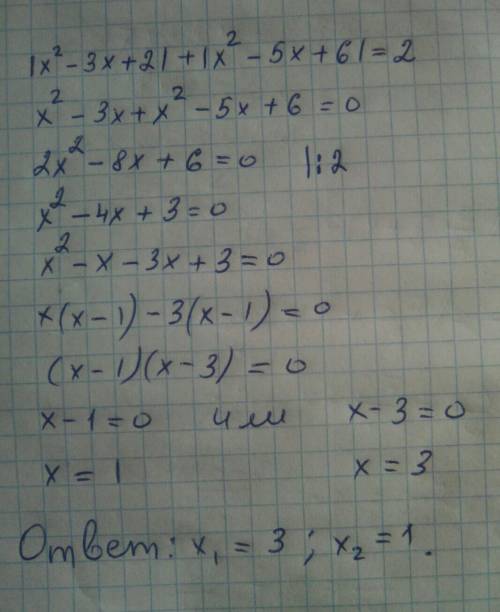 |x² - 3x + 2| + |x² - 5x + 6| = 2
x² - 3x + x² - 5x + 6 = 0
2x² - 8x + 6 = 0 |:2
x² - 4x + 3 = 0
x² - x - 3x + 3 = 0
x(x - 1) - 3(x - 1) = 0
(x - 1)(x - 3) = 0
x - 1 = 0 или x - 3 = 0
x = 1 x = 3
Ответ: x₁ = 3 ; x₂ = 1.